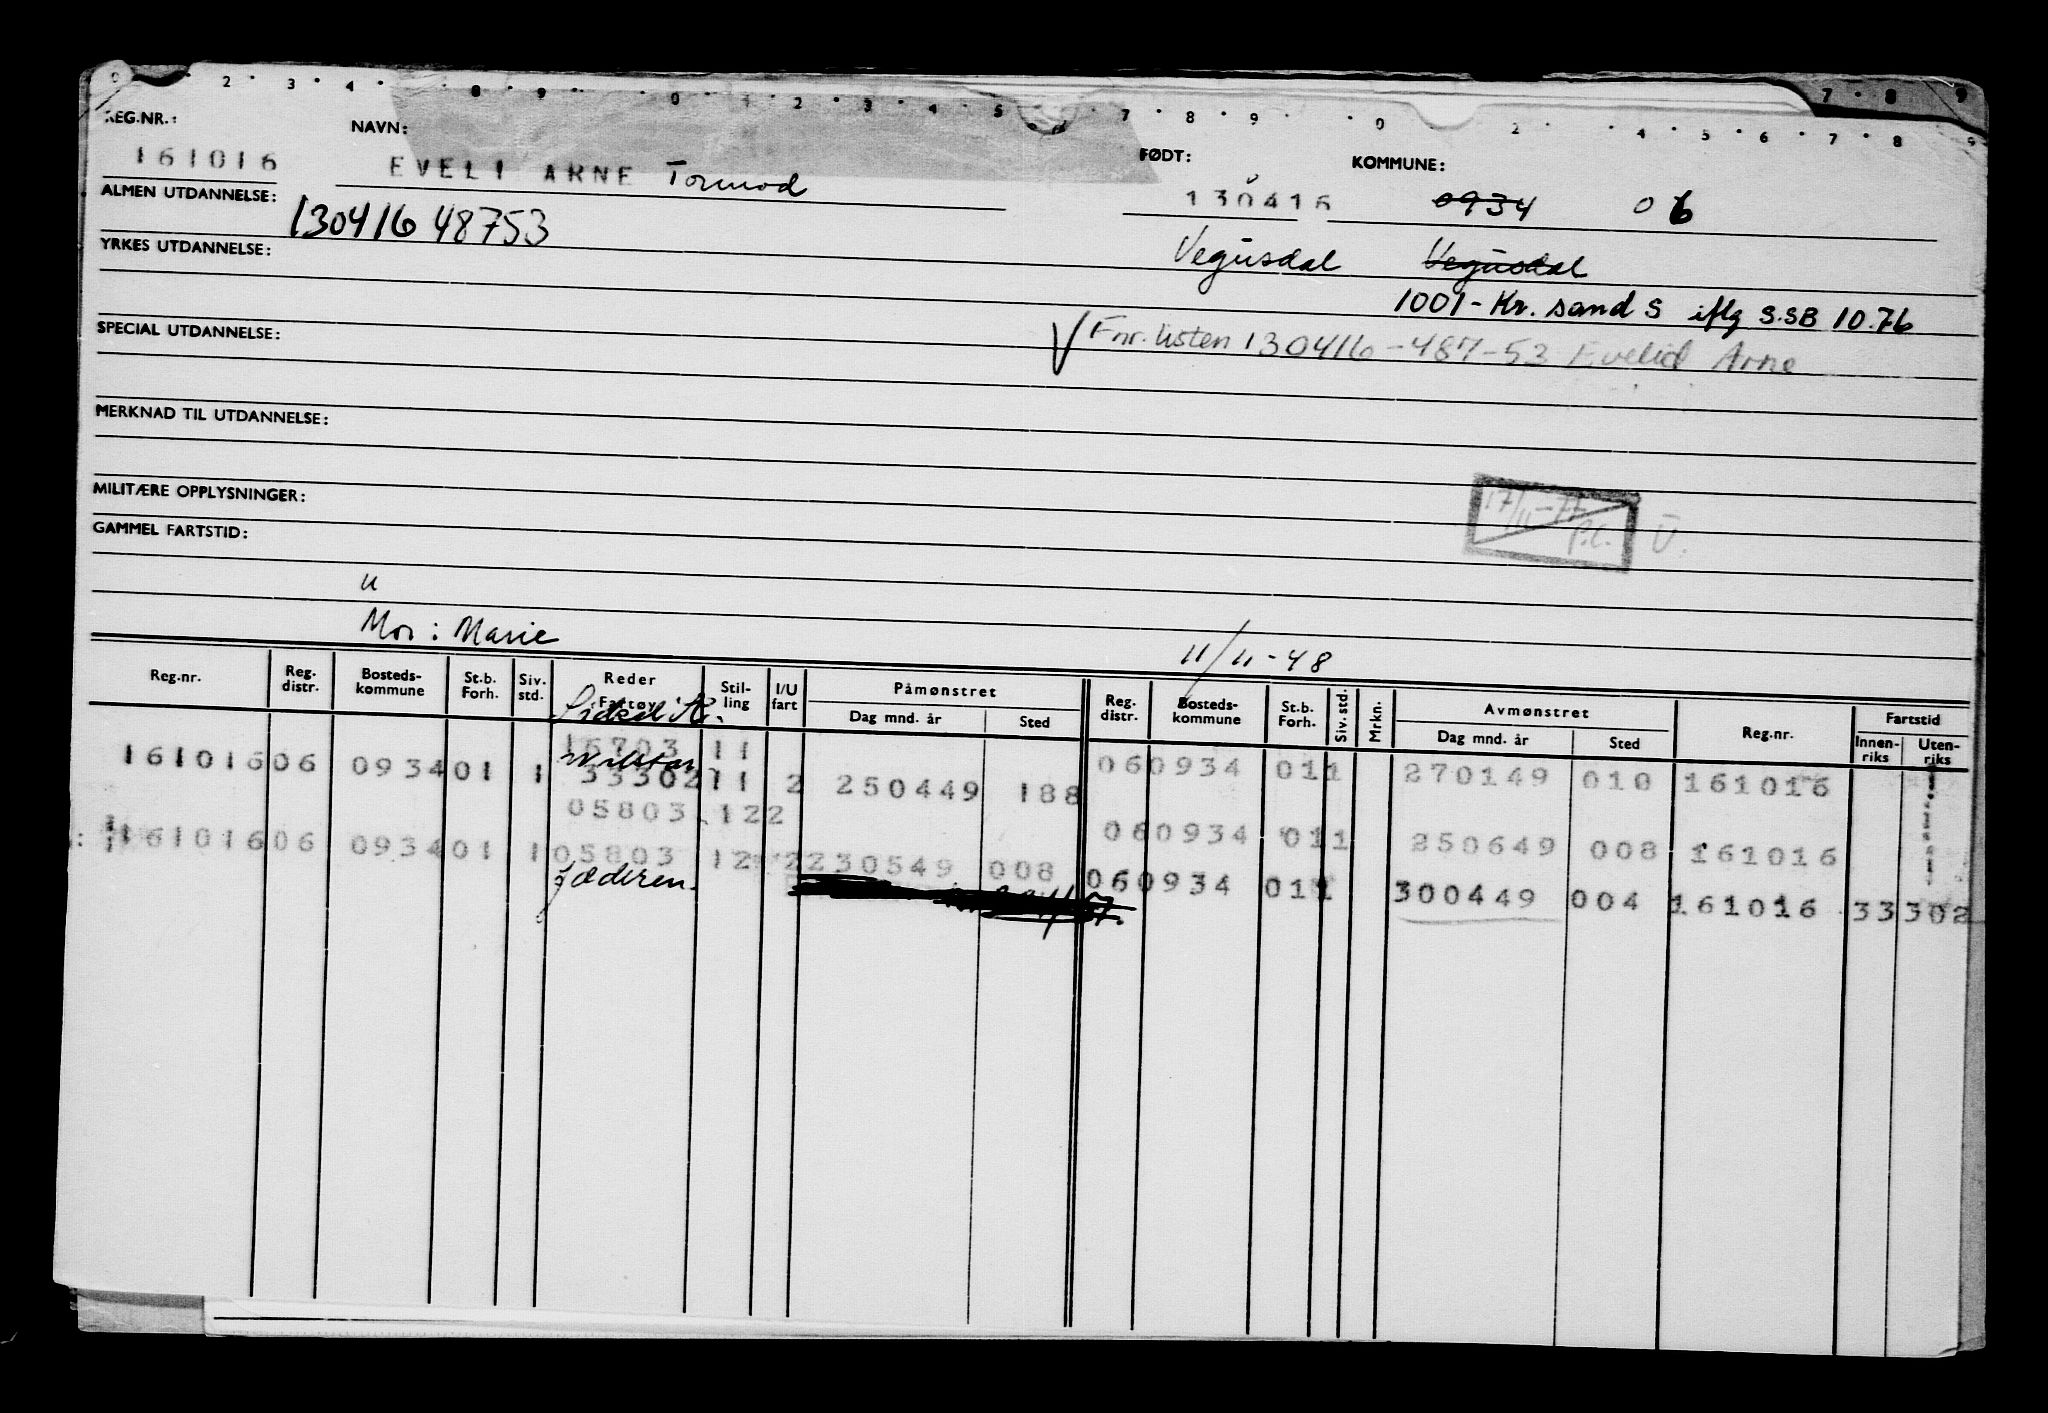 REG.NR.: NAVN: FØDT: KOMMUNE:
161016 EVELI ARNE Tormod 130416 0934 06
ALMEN UTDANNELSE: 130416 48753
YRKES UTDANNELSE: Vegusdal Vegusdal
1001 - Kr. sand S iflg S.SB 10.76
SPECIAL UTDANNELSE: Fnr. listen 130416-487-53 Evelid Arne
MERKNAD TIL UTDANNELSE:
MILITÆRE OPPLYSNINGER: 17/11-77 P.C. U.
GAMMEL FARTSTID:
u
Mor: Marie 11/11-48
Reg.nr. Reg. distr. Bosteds-kommune St.b. Forh. Siv. std. Reder Fartøy Stil-ling I/U fart Påmønstret Dag mnd. år Sted Reg. distr. Bosteds-kommune St.b. Forh. Siv. std. Mrkn. Avmønstret Dag mnd. år Sted Reg.nr. Fartstid Innen-riks Uten-riks
Sidsel A.
16703 11 060934 011 270149 010 161016
Wilstar
161016 06 0934 01 1 33302 11 2 250449 188
05803 122 060934 011 250649 008 161016
161016 06 0934 01 1 05803 12 2 230549 008
Jæderen. 060934 011 300449 004 161016 33302